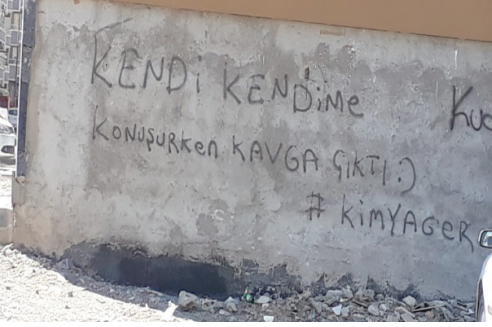 KENDİ KENDİME
KONUŞURKEN KAVGA ÇIKTI :)
# KİMYAGER